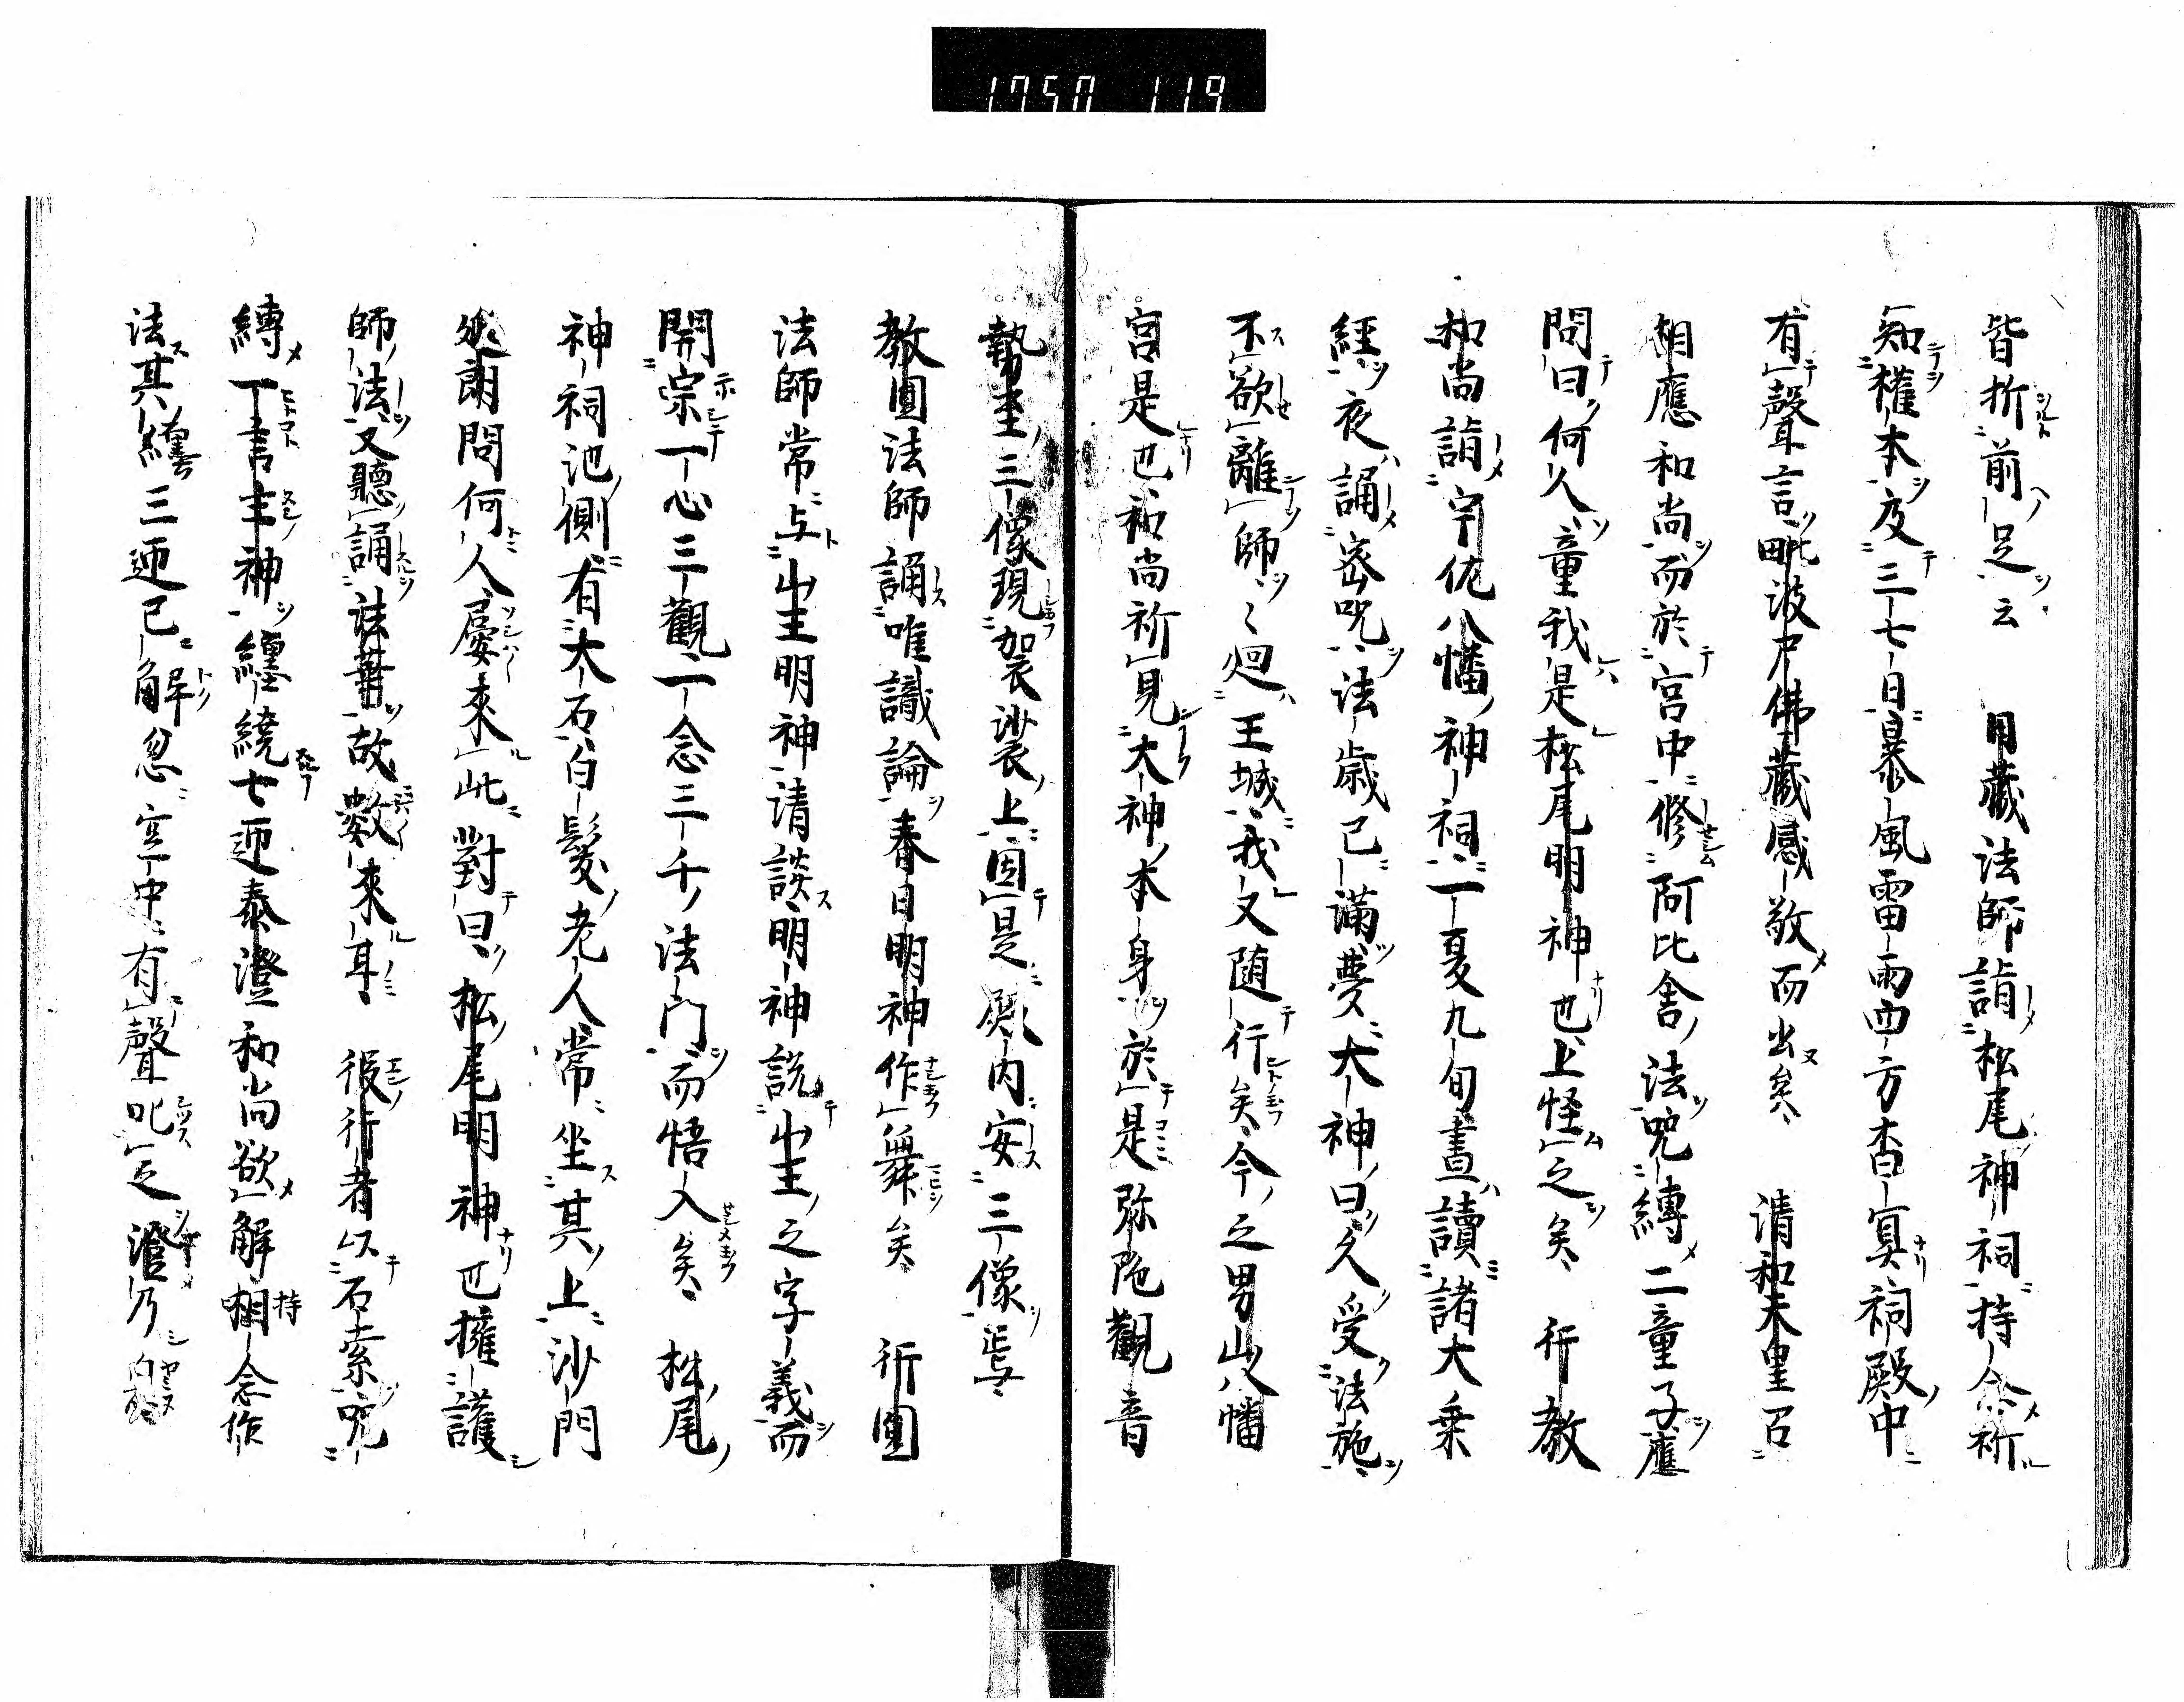 1750 119
皆折前足云 用藏法師詣松尾神祠持念祈
知權本及三七日暴風雷雨四方杳冥祠殿中
有聲言毗波尸佛藏感敬而出矣 清和天皇召
相應和尚而於宮中修阿比舍法咒縛二童子應
問曰何人童我是松尾明神也上怪之矣 行教
和尚詣宇佐八幡神祠一夏九旬晝讀諸大乘
經夜誦密咒法歲已滿夢大神曰久受法施
不欲離師々廻王城我又随行矣今之男山八幡
宮是也和尚祈見大神本身於是弥陁觀音
勢至三像現袈裟上因是殿内安三像焉
教圓法師誦唯識論春日明神作舞矣 行圓
法師常与山王明神清談明神説山王之字義而
開宗一心三觀一念三千法門而悟入矣 松尾
神祠池側有大石白髮老人常坐其上沙門
延朗問何人屢來此對曰松尾明神也擁護
師法又聽誦法華故數來耳 役行者以石索咒
縛一言主神纏繞七迊泰澄和尚欲解持念作
法其纏三迊已解忽空中有聲叱之澄乃